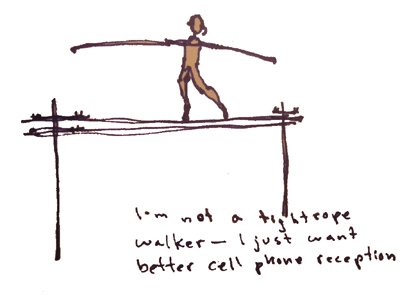 I'm not a tightrope
walker – I just want
better cell phone reception